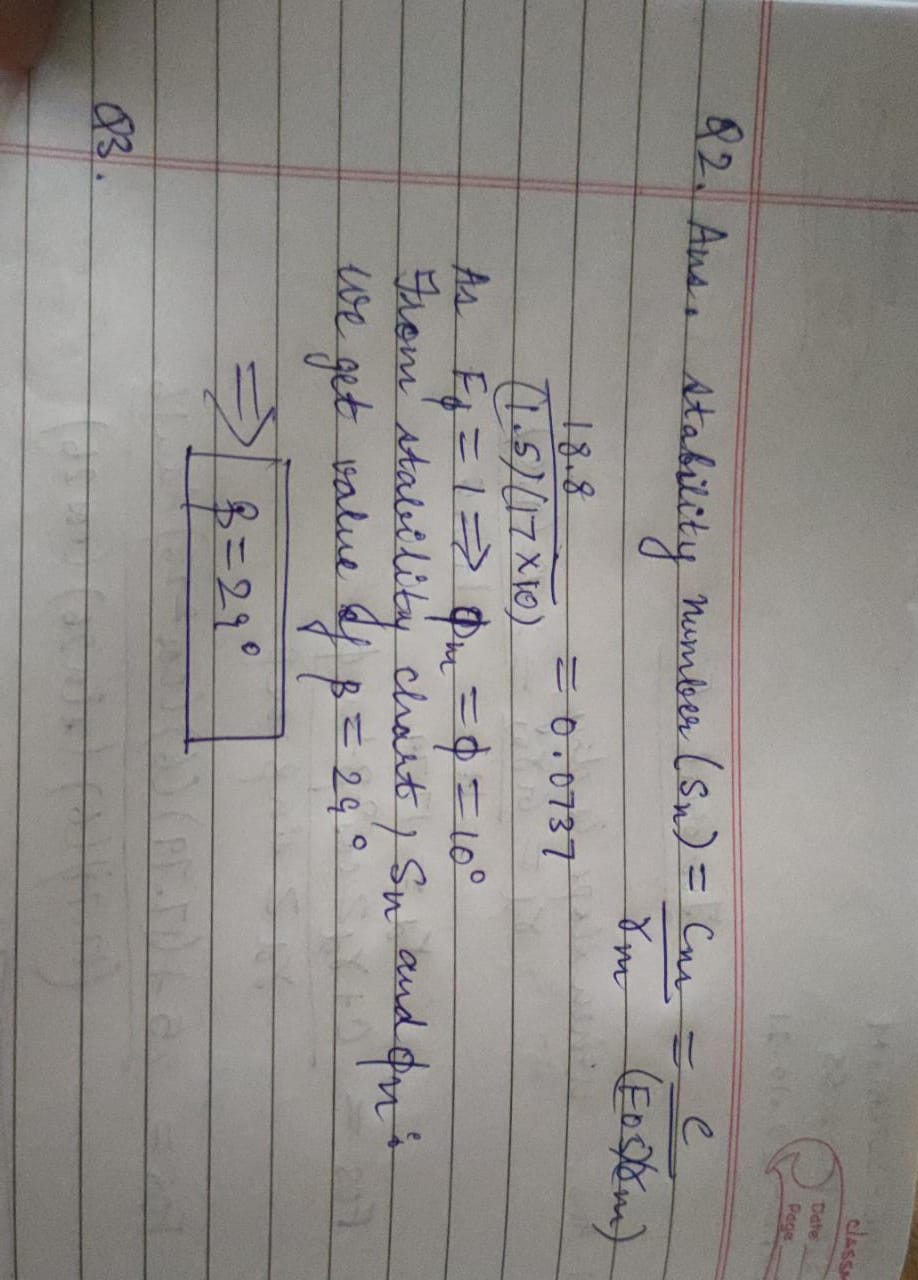 classm
Date
Page
Q2. Ans. stability number (Sn) = Cm / γm = c / (FOS)(γm)
18.8 / (1.5)(17×10) = 0.0737
As Fφ = 1 ⇒ φm = φ = 10°
From stability chart, Sn and φn:
we get value of β = 29°
⇒ β = 29°
Q3.